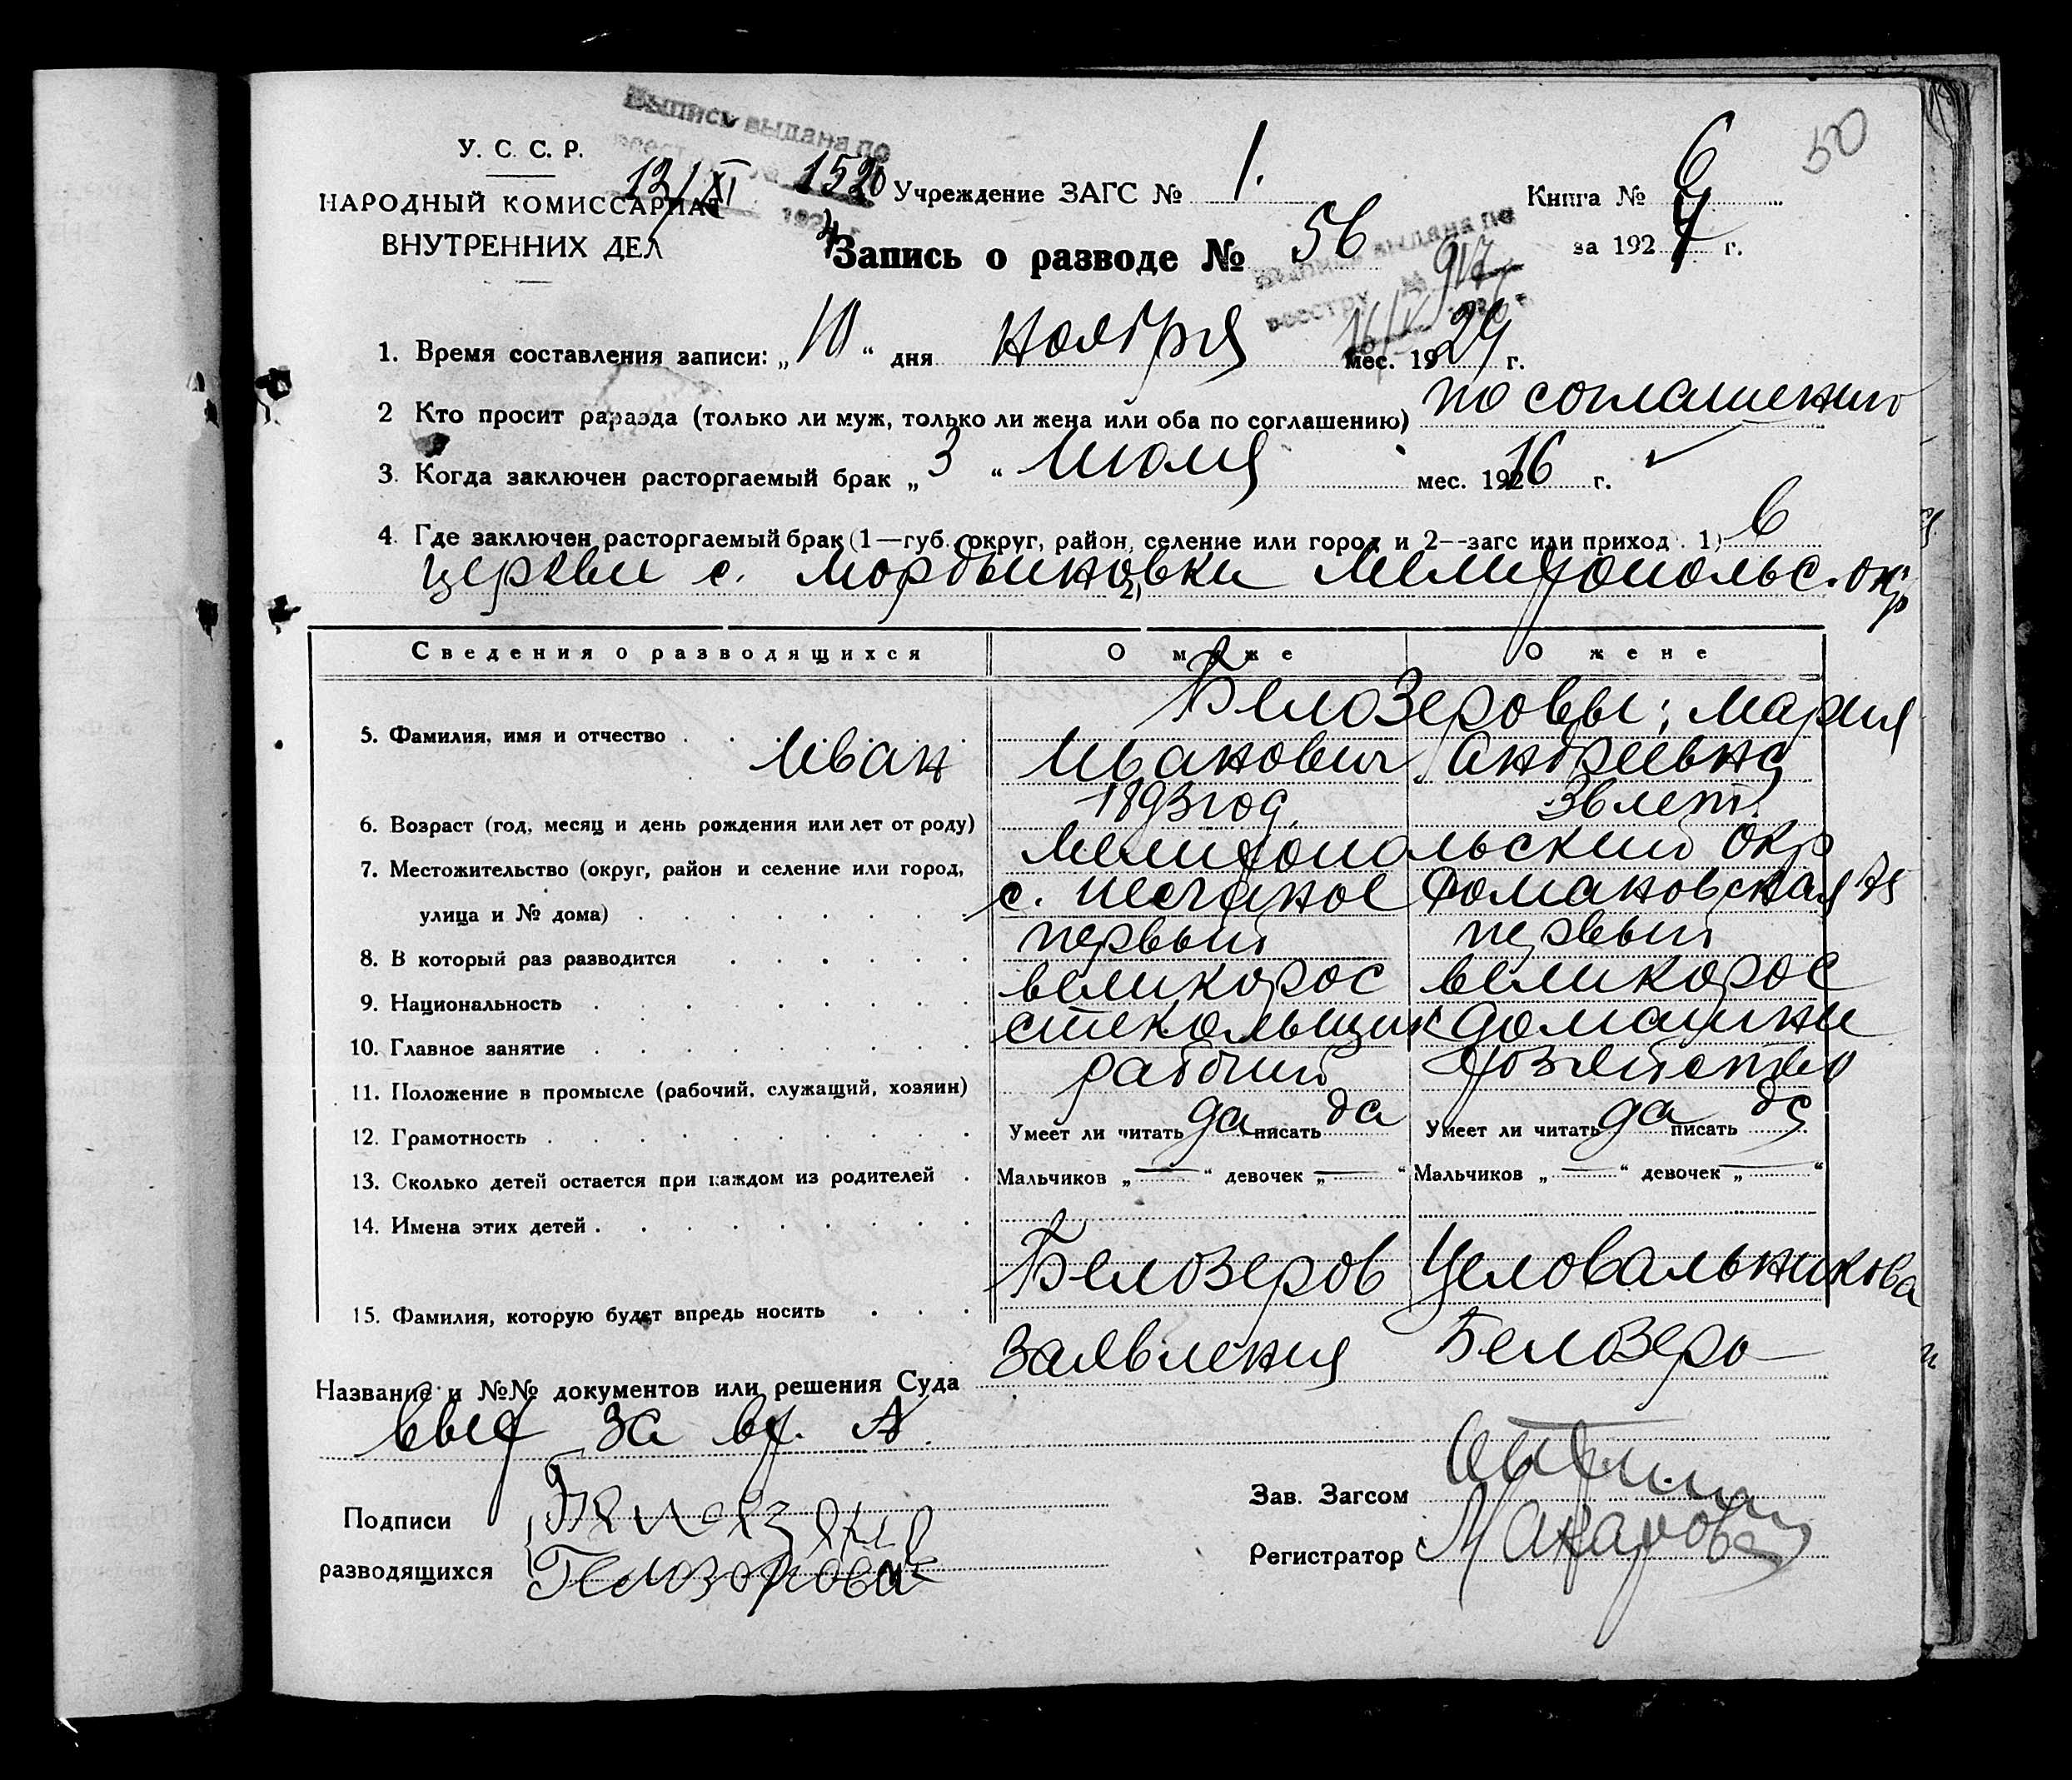 50
Выпись выдана по
13/XI 1520
192
У. С. С. Р.
НАРОДНЫЙ КОМИССАРИАТ
ВНУТРЕННИХ ДЕЛ
Учреждение ЗАГС № 1.
Книга № 6
за 1924 г.
Запись о разводе № 56
выдана по
реестру № 917
1. Время составления записи: „10“ дня ноября мес. 1924 г.
2 Кто просит раразда (только ли муж, только ли жена или оба по соглашению) по соглашению
3. Когда заключен расторгаемый брак „3“ июля мес. 1916 г.
4. Где заключен расторгаемый брак (1—губ. округ, район, селение или город и 2--загс или приход). 1) в
церкви с. Мордвиновки Мелитопольс. окр 2)
Сведения о разводящихся О муже О жене
Белозеровы; Мария
5. Фамилия, имя и отчество Иван Иванович Андреевна
6. Возраст (год, месяц и день рождения или лет от роду) 1893 год. 36 лет.
7. Местожительство (округ, район и селение или город, Мелитопольский окр
улица и № дома) с. Песчаное Романовская 75
8. В который раз разводится первый первый
9. Национальность великорос великорос
10. Главное занятие стекольщик домашнее
11. Положение в промысле (рабочий, служащий, хозяин) рабочий хозяйство
12. Грамотность Умеет ли читать да писать да Умеет ли читать да писать да
13. Сколько детей остается при каждом из родителей Мальчиков „—“ девочек „—“ Мальчиков „—“ девочек „—“
14. Имена этих детей
15. Фамилия, которую будет впредь носить Белозеров Целовальникова
Название и №№ документов или решения Суда заявления Белозеро
вых за вх. №
Подписи
разводящихся
Белозеров
Белозорова
Зав. Загсом
Регистратор Макарова